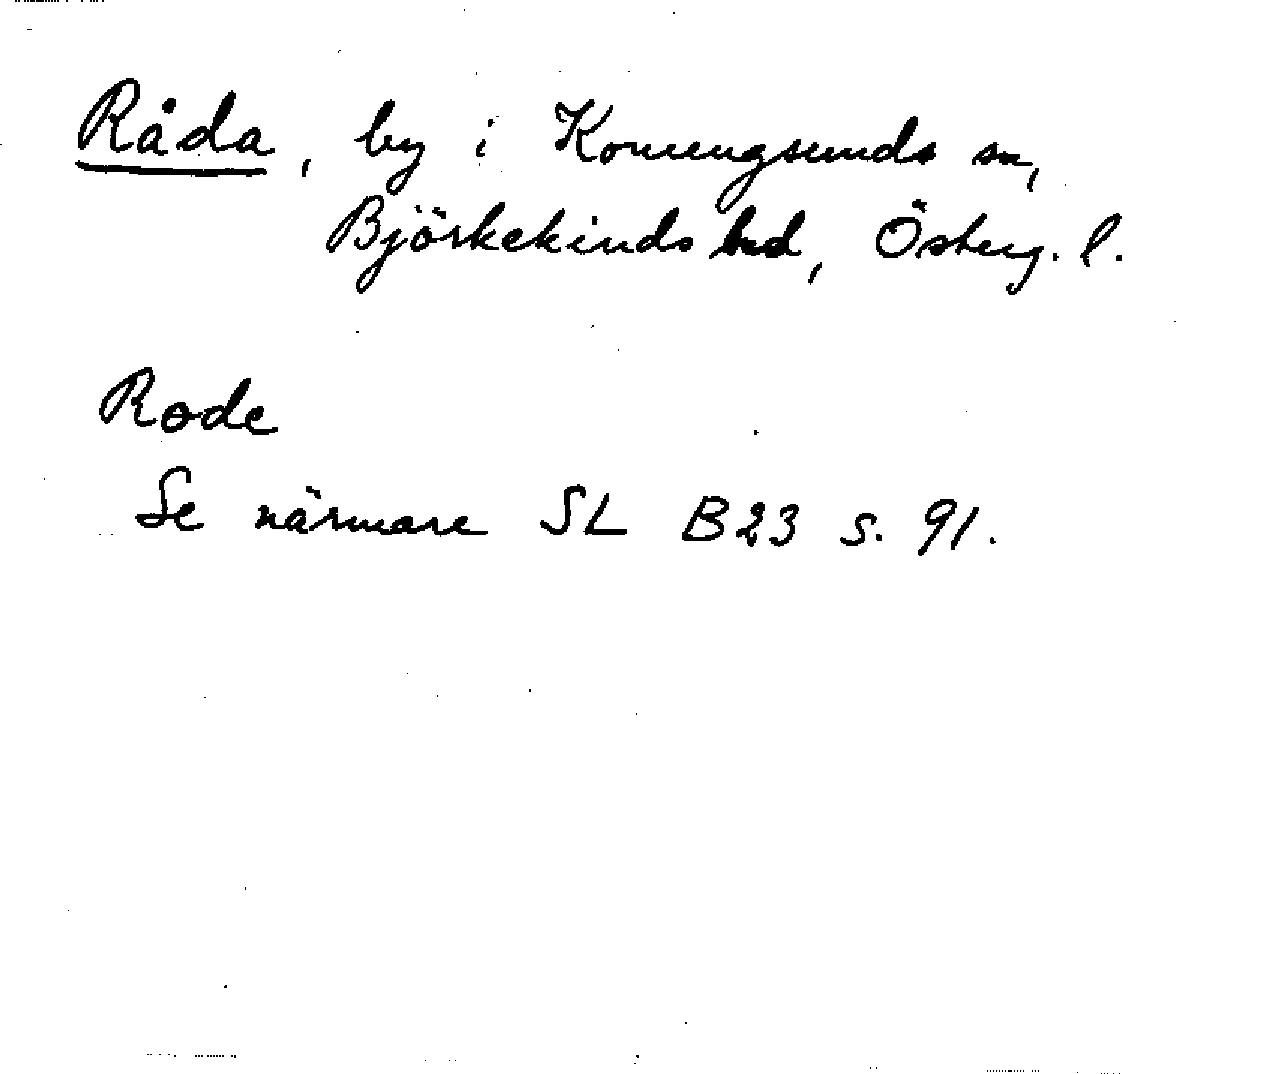 Råda, by i Konungsunds sn,
Björkekinds hd, Österg. l.
Rode
Se närmare SL B23 s. 91.